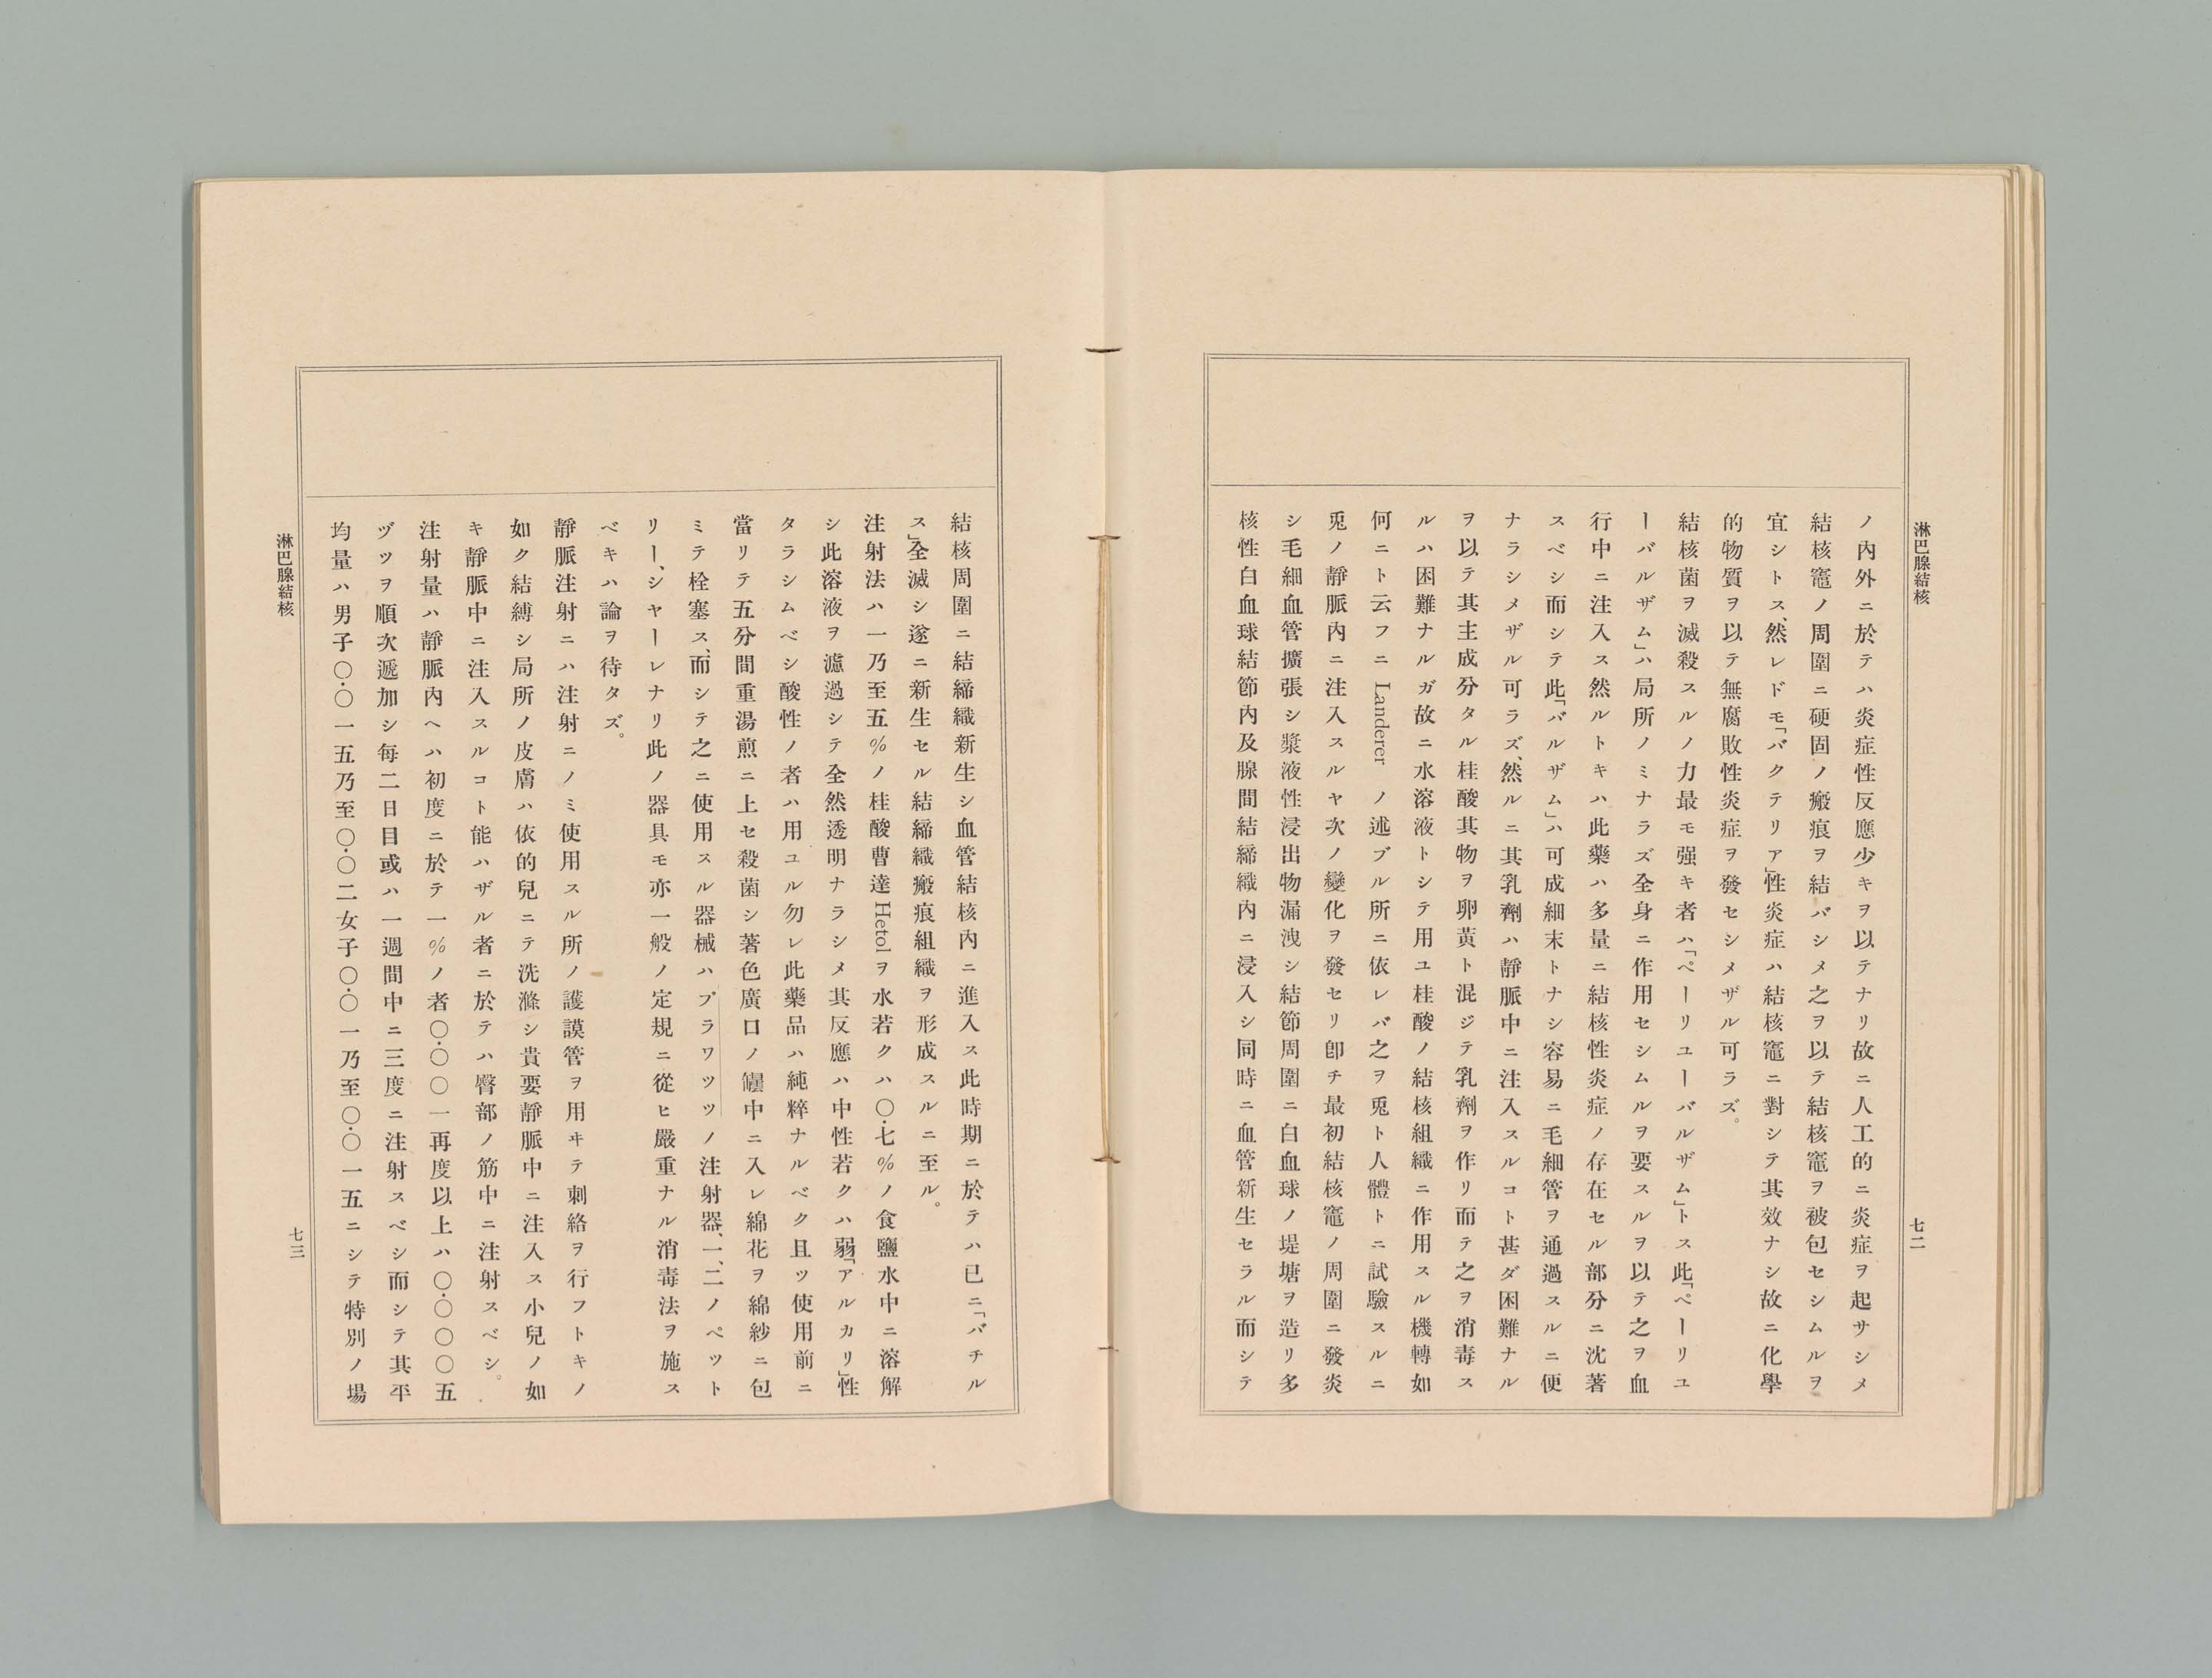 淋巴腺結核
七二
ノ內外ニ於テハ炎症性反應少キヲ以テナリ故ニ人工的ニ炎症ヲ起サシメ
結核竈ノ周圍ニ硬固ノ瘢痕ヲ結バシメ之ヲ以テ結核竈ヲ被包セシムルヲ
宜シトス、然レドモ「バクテリア」性炎症ハ結核竈ニ對シテ其效ナシ故ニ化學
的物質ヲ以テ無腐敗性炎症ヲ發セシメザル可ラズ。
結核菌ヲ滅殺スルノ力最モ强キ者ハ「ペーリユーバルザム」トス此「ペーリユ
ーバルザム」ハ局所ノミナラズ全身ニ作用セシムルヲ要スルヲ以テ之ヲ血
行中ニ注入ス然ルトキハ此藥ハ多量ニ結核性炎症ノ存在セル部分ニ沈著
スベシ而シテ此「バルザム」ハ可成細末トナシ容易ニ毛細管ヲ通過スルニ便
ナラシメザル可ラズ、然ルニ其乳劑ハ靜脈中ニ注入スルコト甚ダ困難ナル
ヲ以テ其主成分タル桂酸其物ヲ卵黃ト混ジテ乳劑ヲ作リ而テ之ヲ消毒ス
ルハ困難ナルガ故ニ水溶液トシテ用ユ桂酸ノ結核組織ニ作用スル機轉如
何ニト云フニ Landerer ノ述ブル所ニ依レバ之ヲ兎ト人體トニ試驗スルニ
兎ノ靜脈內ニ注入スルヤ次ノ變化ヲ發セリ卽チ最初結核竈ノ周圍ニ發炎
シ毛細血管擴張シ漿液性浸出物漏洩シ結節周圍ニ白血球ノ堤塘ヲ造リ多
核性白血球結節內及腺間結締織內ニ浸入シ同時ニ血管新生セラル而シテ
結核周圍ニ結締織新生シ血管結核內ニ進入ス此時期ニ於テハ已ニ「バチル
ス」全滅シ遂ニ新生セル結締織瘢痕組織ヲ形成スルニ至ル。
注射法ハ一乃至五%ノ桂酸曹達 Hetol ヲ水若クハ〇・七%ノ食鹽水中ニ溶解
シ此溶液ヲ濾過シテ全然透明ナラシメ其反應ハ中性若クハ弱「アルカリ」性
タラシムベシ酸性ノ者ハ用ユル勿レ此藥品ハ純粹ナルベク且ツ使用前ニ
當リテ五分間重湯煎ニ上セ殺菌シ著色廣口ノ罎中ニ入レ綿花ヲ綿紗ニ包
ミテ栓塞ス、而シテ之ニ使用スル器械ハプラワツツノ注射器、一、二ノペツト
リー、シヤーレナリ此ノ器具モ亦一般ノ定規ニ從ヒ嚴重ナル消毒法ヲ施ス
ベキハ論ヲ待タズ。
靜脈注射ニハ注射ニノミ使用スル所ノ護謨管ヲ用ヰテ刺絡ヲ行フトキノ
如ク結縛シ局所ノ皮膚ハ依的兒ニテ洗滌シ貴要靜脈中ニ注入ス小兒ノ如
キ靜脈中ニ注入スルコト能ハザル者ニ於テハ臀部ノ筋中ニ注射スベシ。
注射量ハ靜脈內ヘハ初度ニ於テ一%ノ者〇・〇〇一再度以上ハ〇・〇〇〇五
ヅツヲ順次遞加シ每二日目或ハ一週間中ニ三度ニ注射スベシ而シテ其平
均量ハ男子〇・〇一五乃至〇・〇二女子〇・〇一乃至〇・〇一五ニシテ特別ノ場
淋巴腺結核
七三